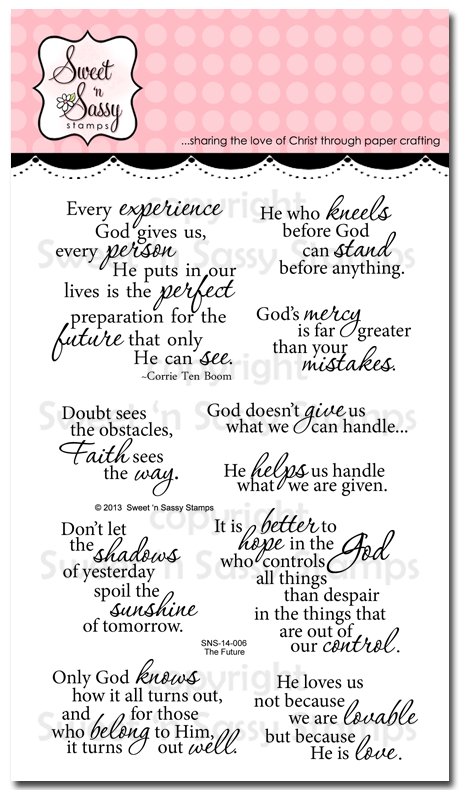 Sweet
'n
Sassy
stamps
...sharing the love of Christ through paper crafting
Every experience
God gives us,
every person
He puts in our
lives is the perfect
preparation for the
future that only
He can see.
~Corrie Ten Boom
He who kneels
before God
can stand
before anything.
God's mercy
is far greater
than your
mistakes.
Doubt sees
the obstacles,
Faith sees
the way.
God doesn't give us
what we can handle...
He helps us handle
what we are given.
© 2013 Sweet 'n Sassy Stamps
Don't let
the shadows
of yesterday
spoil the
sunshine
of tomorrow.
It is better to
hope in the God
who controls
all things
than despair
in the things that
are out of
our control.
SNS-14-006
The Future
Only God knows
how it all turns out,
and for those
who belong to Him,
it turns out well.
He loves us
not because
we are lovable
but because
He is love.
copyright
Sweet 'n Sassy Stamps
copyright
Sweet 'n Sassy Stamps
copyright
Sweet 'n Sassy Stamps
copyright
Sweet 'n Sassy Stamps